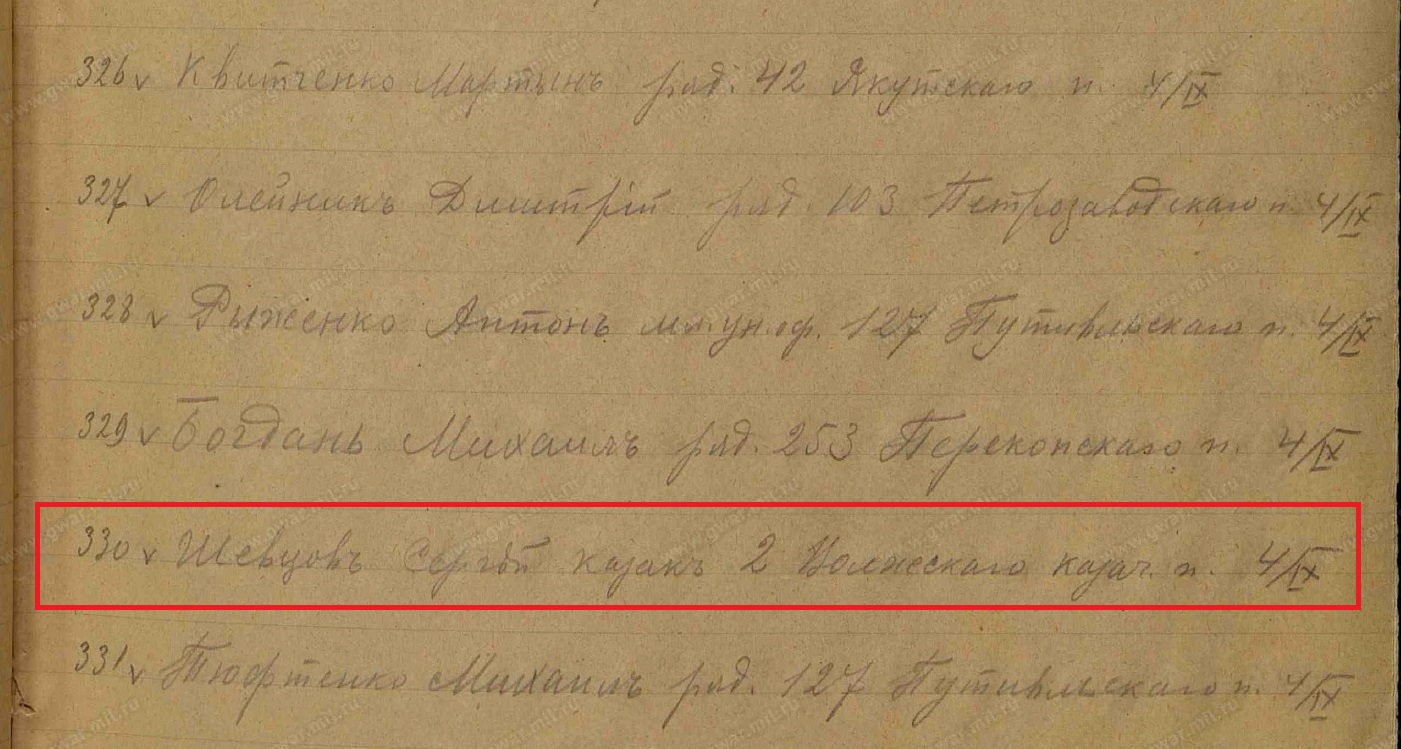 326 v Квитченко Мартынъ ряд. 42 Якутскаго п. 4/IX
327 v Олейникъ Дмитрій ряд. 103 Петрозаводскаго п. 4/IX
328 v Рыженко Антонъ мл. ун. оф. 127 Путивльскаго п. 4/IX
329 v Богданъ Михаилъ ряд. 253 Перекопскаго п. 4/IX
330 v Шевцовъ Сергѣй казакъ 2 Волжескаго казач. п. 4/IX
331 v Тюфтенко Михаилъ ряд. 127 Путивльскаго п. 4/IX
www.gwar.mil.ru